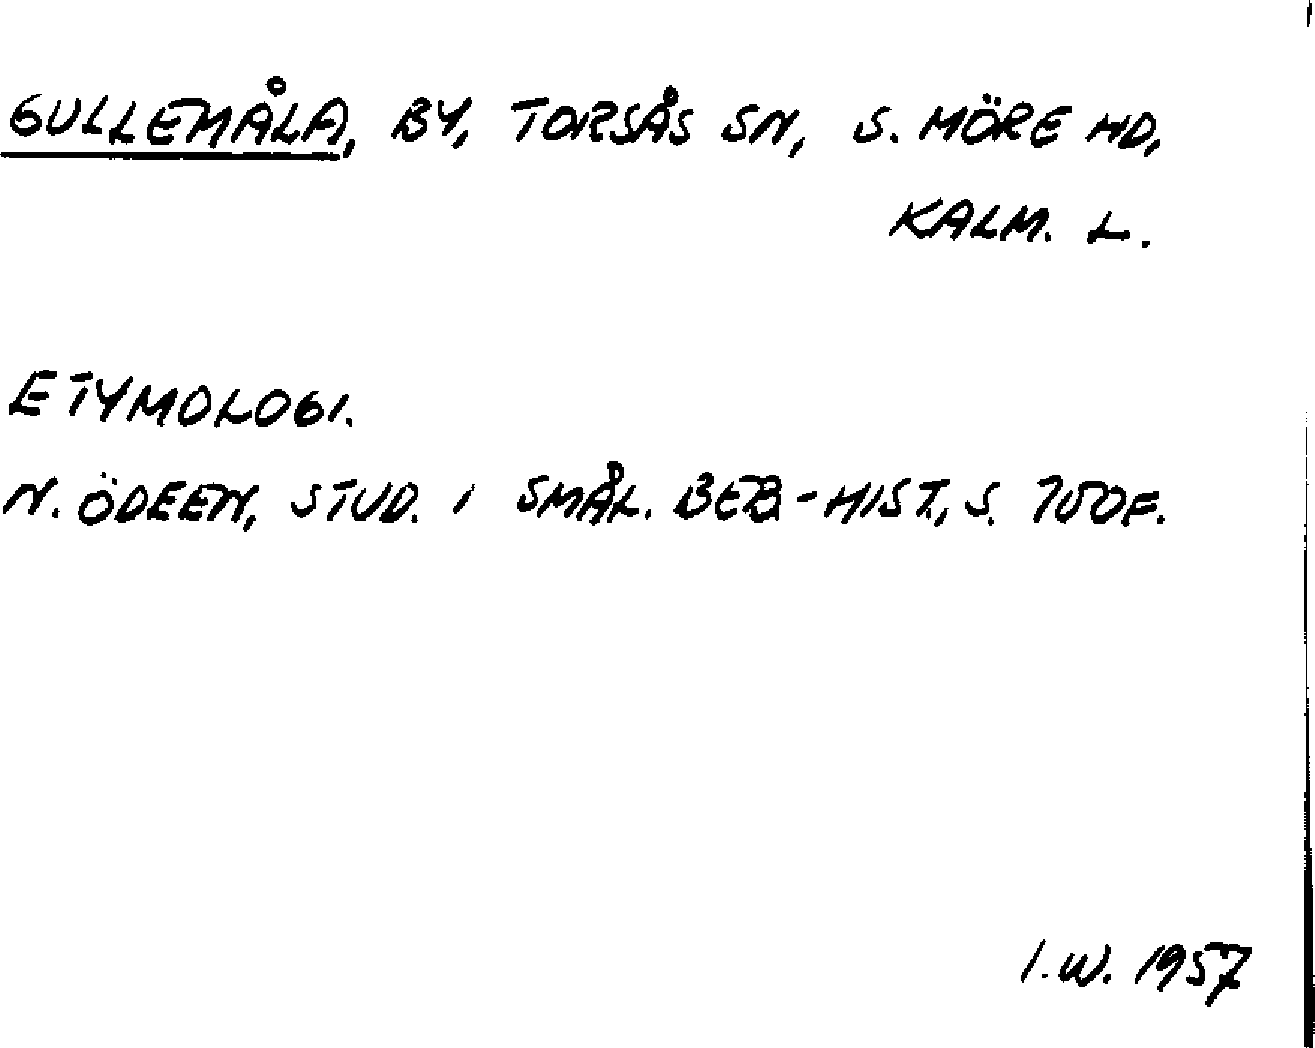 GULLEMÅLA, BY, TORSÅS SN, S. MÖRE HD,
KALM. L.
ETYMOLOGI.
N. ÖDEEN, STUD. I SMÅL. BEB-HIST, S.
I.W. 1957